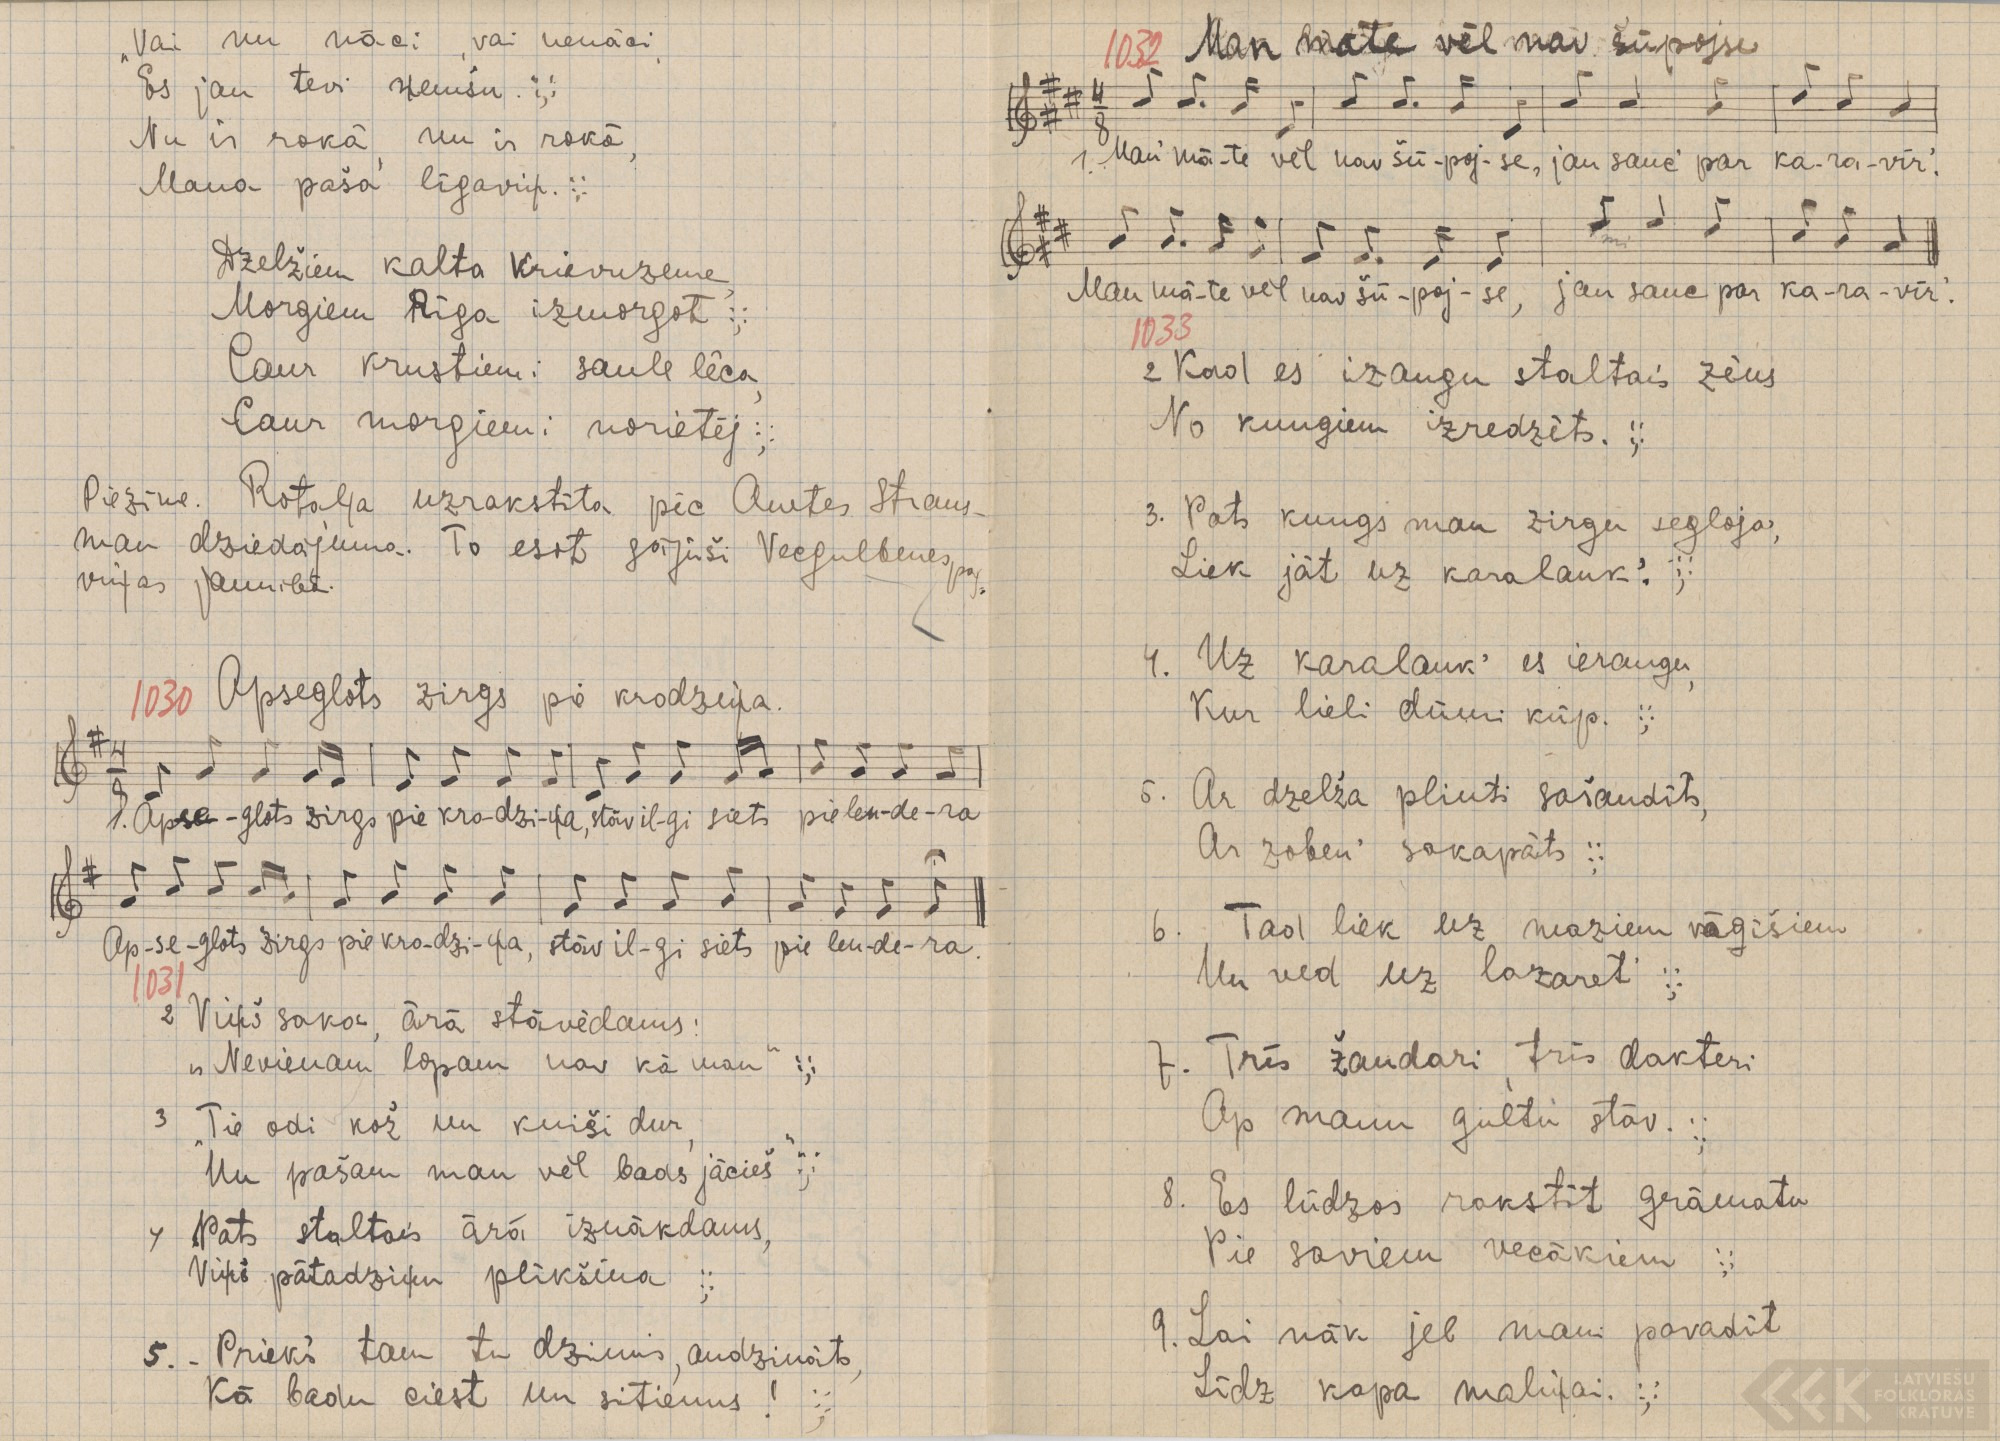 „Vai nu nāci, vai nenāci,
Es jau tevi ņemšu. :;:
Nu ir rokā, nu ir rokā,
Mana paša līgaviņ. :;:
Dzelžiem kalta Krievuzeme,
Morgiem Rīga izmorgot :;:
Caur krustiem: saule lēca,
Caur morgiem: norietēj :;:
Piezīme. Rotaļa uzrakstīta pēc Anetes Straus-
man dziedājuma. To esot gājuši Vecgulbenes pag.
viņas jaunībā.
1030 Apseglots zirgs pē krodziņa.
4/8
1. Apse-glots zirgs pie kro-dzi-ņa, stāv il-gi siets pie len-de-ra
Ap-se-glots zirgs pie kro-dzi-ņa, stāv il-gi siets pie len-de-ra.
1031
2 Viņš saka, ārā stāvēdams:
„Nevienam lopam nav kā man“ :;:
3 „Tie odi kož un kniši dur,
Un pašam man vēl bads jācieš“ :;:
4 Pats staltais ārā iznākdams,
Viņš pātadziņu plikšķina :;:
5. - Priekš tam tu dzimis, audzināts,
Kā badu ciest un sitienus! :;:
1032 Man māte vēl nav šūpojse
4/8
1. Man' mā-te vēl nav šū-poj-se, jau sauc' par ka-ra-vīr'.
Man mā-te vēl nav šū-poj-se, jau sauc par ka-ra-vīr'.
1033
2 Kad es izaugu staltais zēns
No kungiem izredzēts. :;:
3. Pats kungs man zirgu segloja,
Liek jāt uz karalauk'. :;:
4. Uz karalauk' es ieraugu,
Kur lieli dūmi kūp. :;:
5. Ar dzelža plinti sašaudīts,
Ar zoben' sakapāts :;:
6. Tad liek uz maziem vāģīšiem
Un ved uz lazaret' :;:
7. Trīs žandari, trīs dakteri
Ap manu gultu stāv. :;:
8. Es lūdzos rakstīt grāmatu
Pie saviem vecākiem :;:
9. Lai nāk jel mani pavadīt
Līdz kapa maliņai. :;:
LATVIEŠU
FOLKLORAS
KRĀTUVE